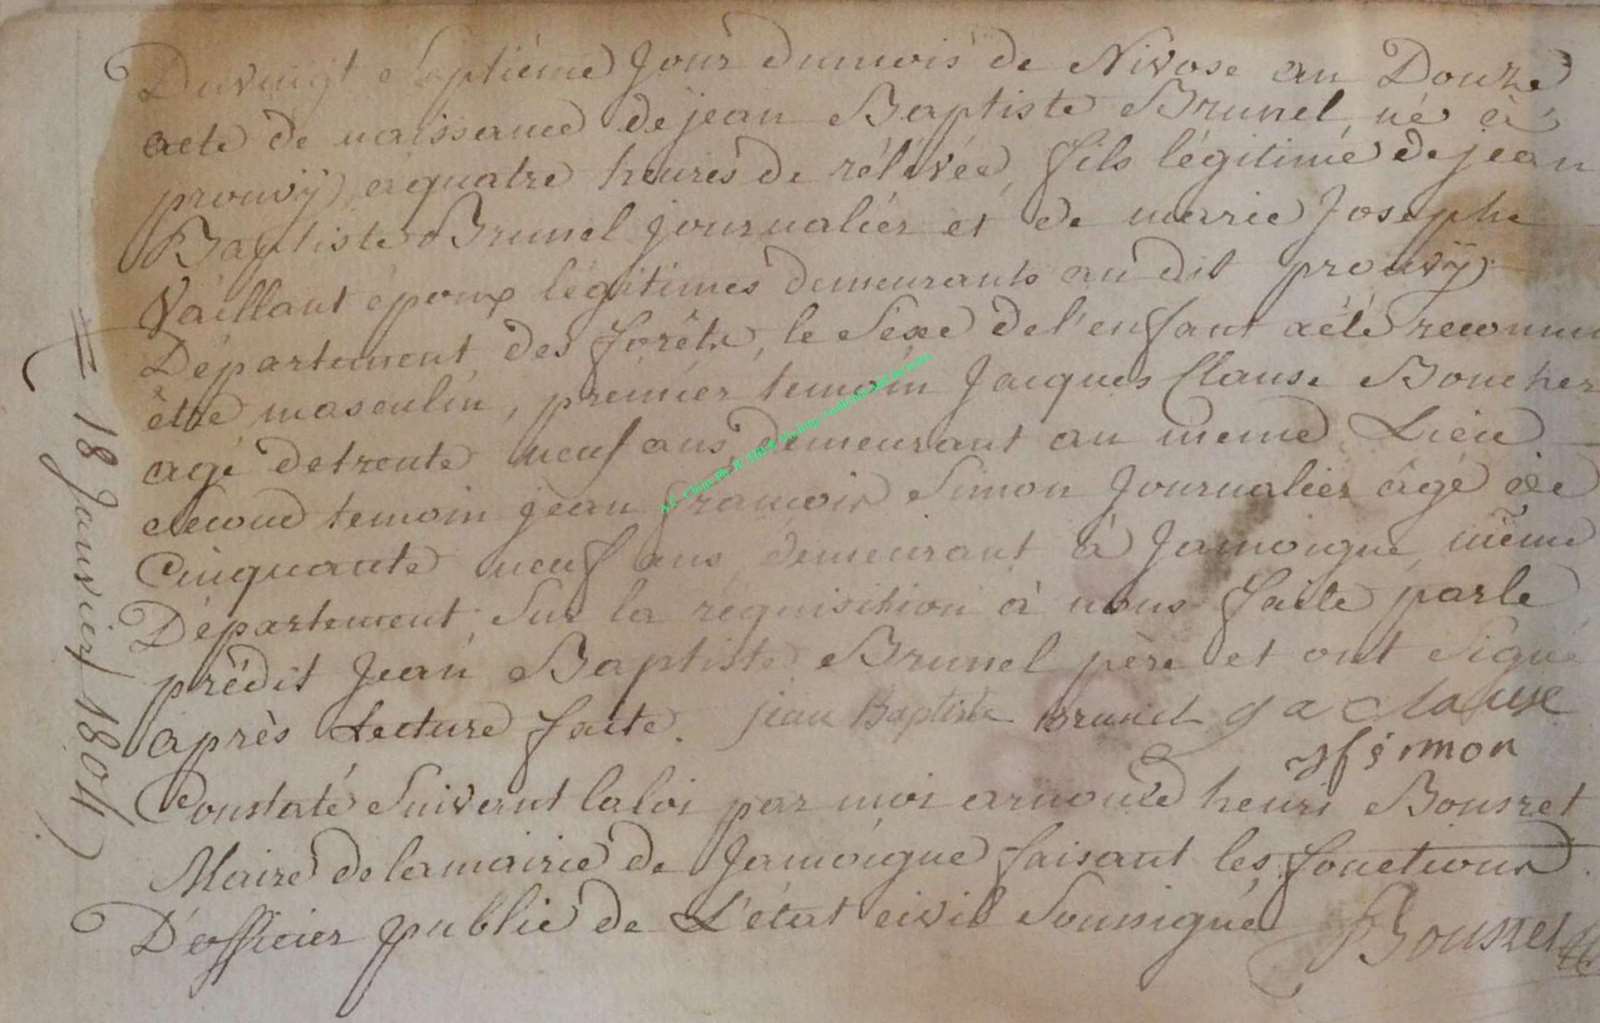 Du vingt Septième Jour du mois de Nivose an Douze
acte de naissance de jean Baptiste Brunel né à
prouvÿ à quatre heures de rélévée, fils légitime de jean
Baptiste Brunel journalier et de marie Josephe
Vaillant époux légitimes demeurants au dit prouvÿ
Département des forêts, le Séxe de l'enfant a été reconnu
être masculin, premier temoin Jacques Clause Boucher
agé de trente neuf ans, demeurant au meme Lieu
second temoin jean françois Simon Journalier âgé de
Cinquante neuf ans demeurant à Jamoigne même
Département Sur la réquisition à nous faite par le
prédit Jean Baptiste Brunel père et ont Signé
après Lecture faite. jean Baptiste Brunel J a Clause
jfsimon
Constaté Suivant la loi par moi arnould henri Bousret
Maire de la mairie de Jamoigne faisant les fonctions
D'officier public de L'état civil Soussigné Bousret
18 Janvier 1804